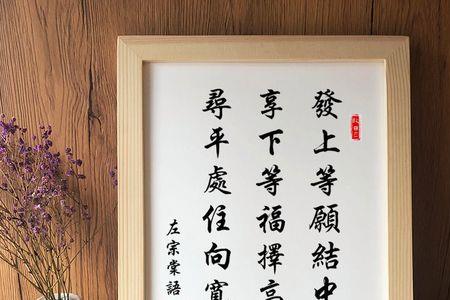 發上等願結中
享下等福擇高
尋平處住向寬
左宗棠語